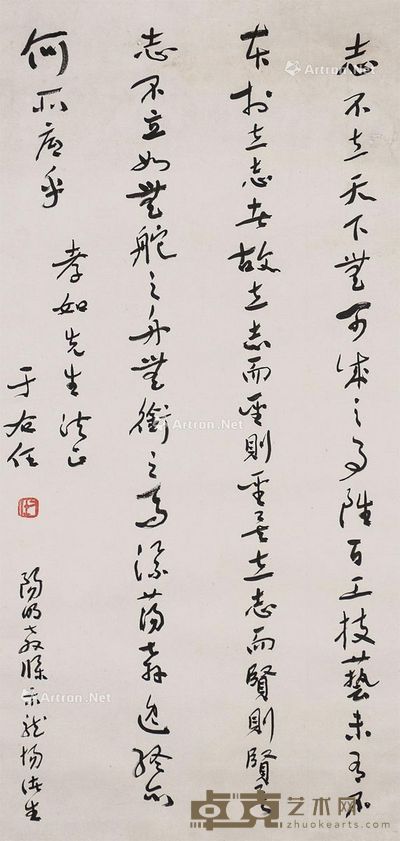 志不立天下無可成之事雖百工技藝未有不
本於立志者故立志而聖則聖矣立志而賢則賢矣
志不立如無舵之舟無銜之馬漂蕩奔逸終亦
何所底乎
孝如先生法正
于右任
陽明教條示龍場諸生
Artron.Net
Artron.Net
Artron.Net
Artron.Net
卓克艺术网
www.zhuokearts.com